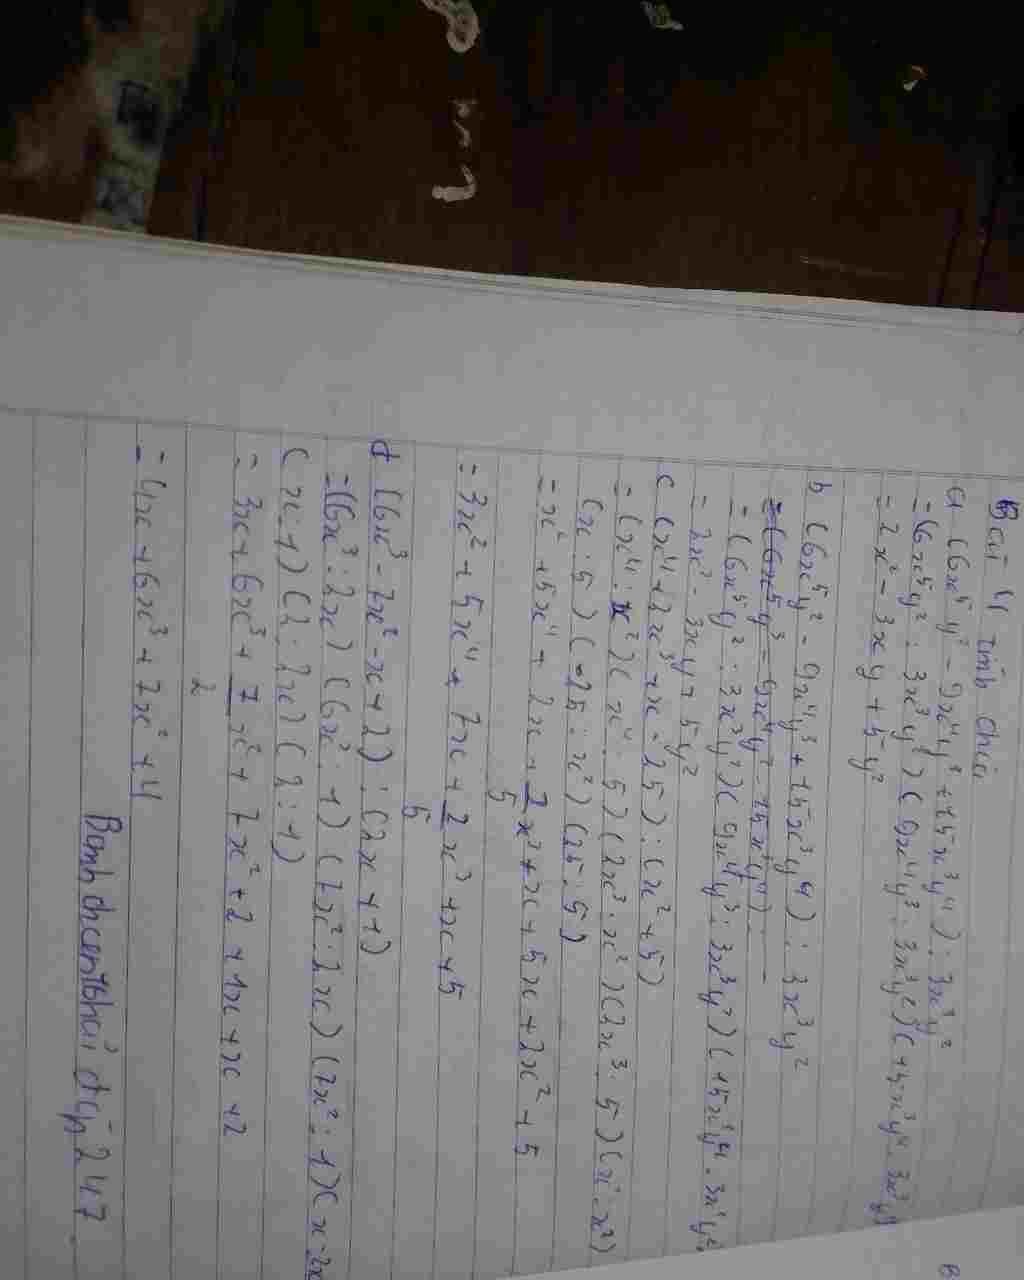 Bài 4 tính chia
a (6x⁵y² - 9x⁴y³ + 15x³y⁴) : 3x³y²
= (6x⁵y² : 3x³y²) (9x⁴y³ : 3x³y²) (+15x³y⁴ : 3x³y²
= 2x² - 3xy + 5y²
b (6x⁵y² - 9x⁴y³ + 15x³y⁴) : 3x³y²
= (6x⁵y² : 3x³y²) (9x⁴y³ : 3x³y²) (+15x³y⁴ : 3x³y²
= 2x² - 3xy + 5y²
c (x⁴ + 2x³ + x - 25) : (x² + 5)
= (x⁴ : x²) (x⁴ : 5) (2x³ : x²) (2x³ : 5) (x : x²)
(x : 5) (-25 : x²) (25 : 5)
= x² + 5x⁴ + 2x + 2/5 x³ + x + 5x + 2x² + 5
= 3x² + 5x⁴ + 7x + 2/5 x³ + x + 5
d (6x³ - 7x² - x + 2) : (2x + 1)
= (6x³ : 2x) (6x³ : 1) (7x² : 2x) (7x² : 1) (x : 2x
(x : 1) (2 : 2x) (2 : 1)
= 3x + 6x³ + 7/2 x² + 7x² + 2 + 1x + x + 2
= 4x + 6x³ + 7x² + 4
247